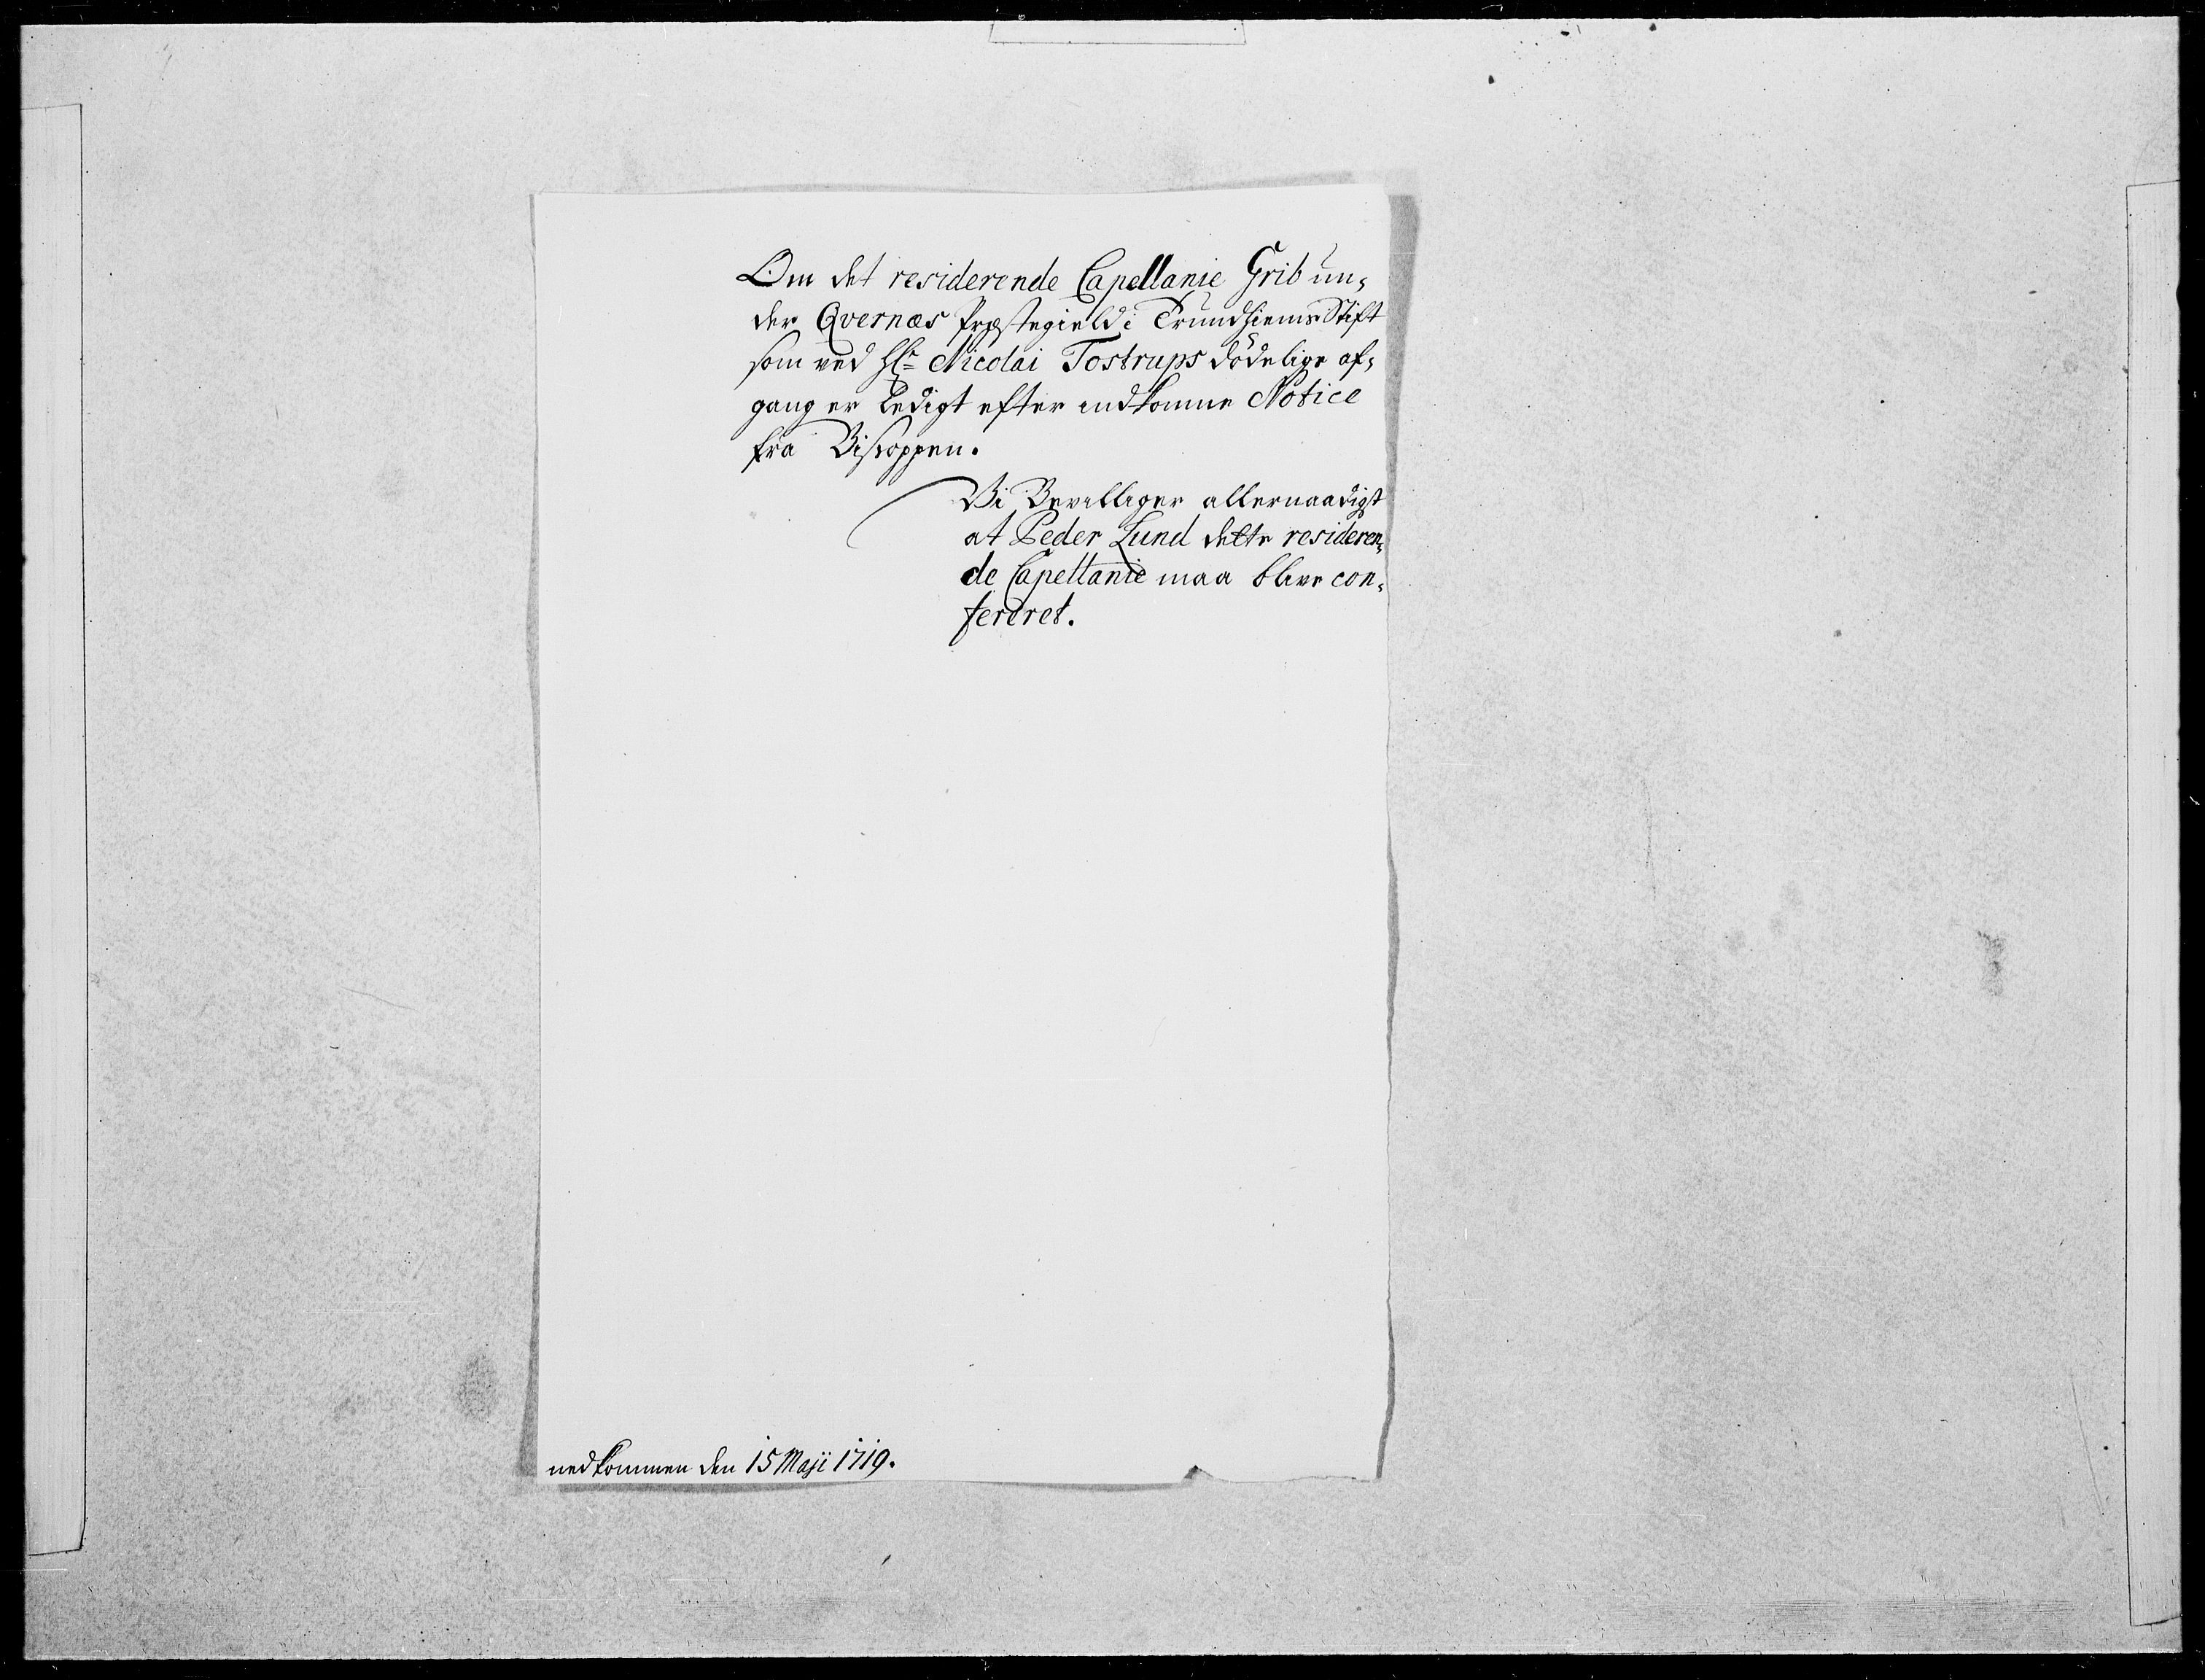 Om det residerende Capellanie Grib un-
der Qvernæs Præstegield i Trundhiems Stift
som ved Hr. Nicolai Tostrups dödelige af-
gang er Ledigt efter indkomne Notice
fra Biskoppen.
Vi Bevilliger allernaadigst
at Peder Lund dette residere-
de Capellanie maa blive con-
fereret.
nedkommen den 15 Maji 1719.